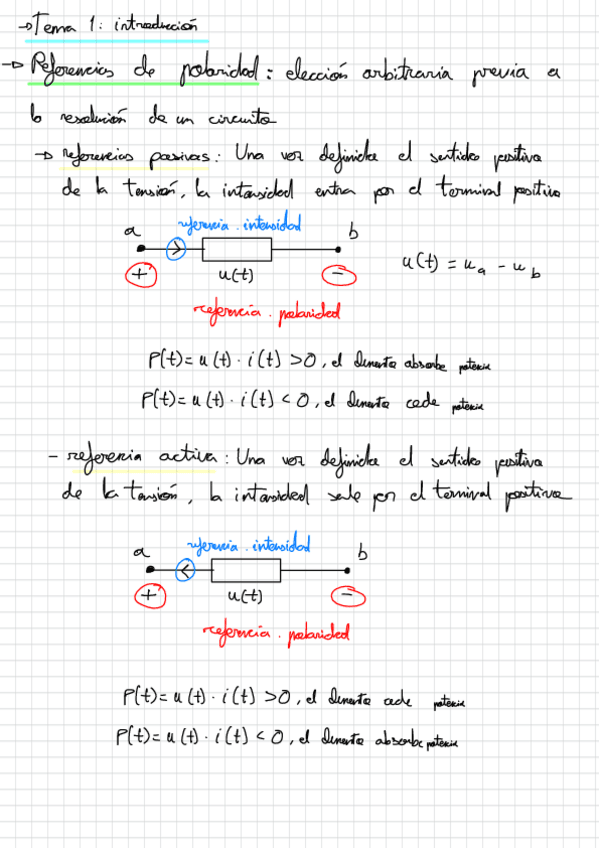 → Tema 1: introducción
→ Referencias de polaridad: elección arbitraria previa a
la resolución de un circuito
→ referencias pasivas: Una vez definida el sentido positivo
de la tensión, la intensidad entra por el terminal positivo
referencia . intensidad
a b
+ u(t) -
u(t) = u_a - u_b
referencia . polaridad
P(t) = u(t) · i(t) > 0, el elemento absorbe potencia
P(t) = u(t) · i(t) < 0, el elemento cede potencia
- referencia activa: Una vez definida el sentido positivo
de la tensión, la intensidad sale por el terminal positivo
referencia . intensidad
a b
+ u(t) -
referencia . polaridad
P(t) = u(t) · i(t) > 0, el elemento cede potencia
P(t) = u(t) · i(t) < 0, el elemento absorbe potencia